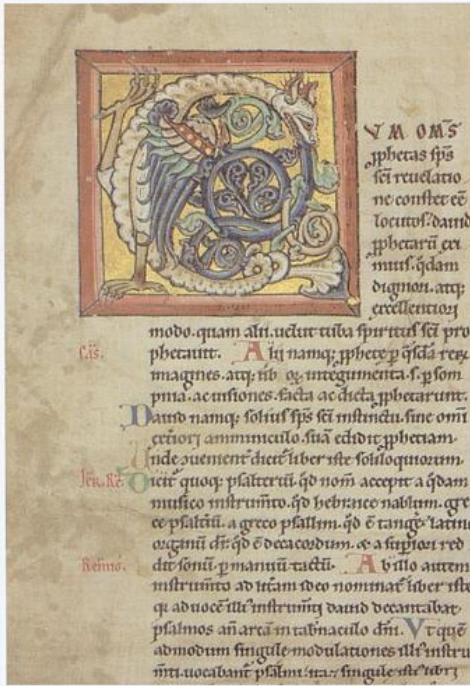 C
VM OMS̄
ꝓphetas sp̄s
sc̄i reuelatio
ne constet eē
locutos. dauid
ꝓphetarū exi
mius. q̄dam
digniori. atq;
excellentiori
modo. quam alii. uelut tuba spiritus sc̄i pro
phetauit. Alii namq; ꝓphetę ꝑ q̄sdā reꝝ
imagines. atq; uboꝝ integumenta. s. ꝑ som
pnia. ac uisiones. facta ac dicta ꝓphetarunt.
Dauid namq; solius sp̄s sc̄i instinctu. sine omi
exteriori amminiculo. suā edidit ꝓphetiam.
Unde ꝯuenient̄ dicit̄ liber iste soliloquiorum.
Dicit̄ quoq; psalteriū. qd̄ nom̄ accepit a q̄dam
musico instrum̄to. qd̄ hebraice nablum. gre
ce psaltiū. a greco psallin. qd̄ ē tanḡe. latine
organū dr̄. qd̄ ē decacordum. & a supiori red
dit sonū ꝑ manuū tactū. Ab illo autem
instrum̄to ad litam ideo nominat̄ liber iste
qi ad uocē illi' instrum̄ti dauid decantabat
psalmos an̄ arcā in tab̄naculo dn̄i. Vt quē
admodum singulę modulationes illi' instru
m̄ti. uocabant̄ psalmi. ita & singulę isti' libri